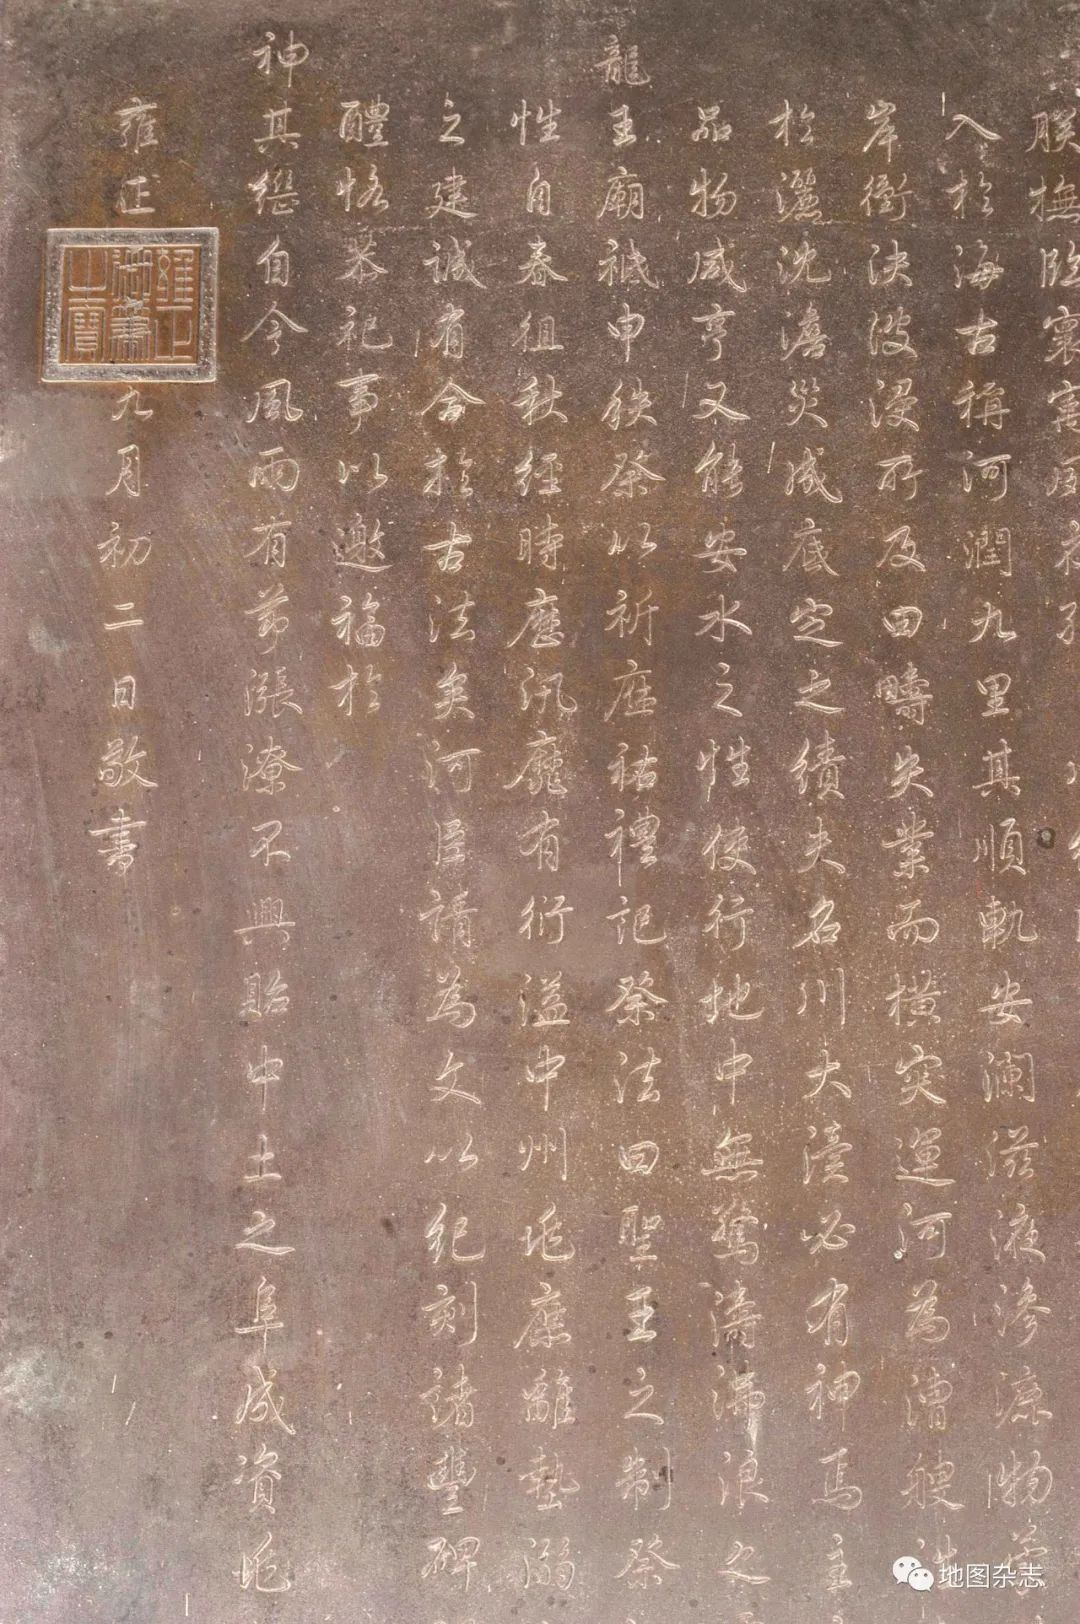 朕撫臨寰寓夙夜孜
入於海古稱河潤九里其順軌安瀾滋液滲漉物蒙
岸衝決波浸所及田疇失業而橫突運河為漕艘
於灑沈澹災成底定之績夫名川大瀆必有神焉主
品物咸亨又能安水之性使行地中無驚濤沸浪之
龍王廟祗申秩祭以祈庇祐禮記祭法曰聖王之制祭
性自春徂秋經時歷汛靡有衍溢中州兆庶離墊溺
之建誠有合於古法矣河臣請為文以紀刻諸豐碑
醴恪恭祀事以邀福於
神其繼自今風雨有節漲潦不興貽中土之阜成資兆
雍正九月初二日敬書
雍正御筆之寶
地图杂志